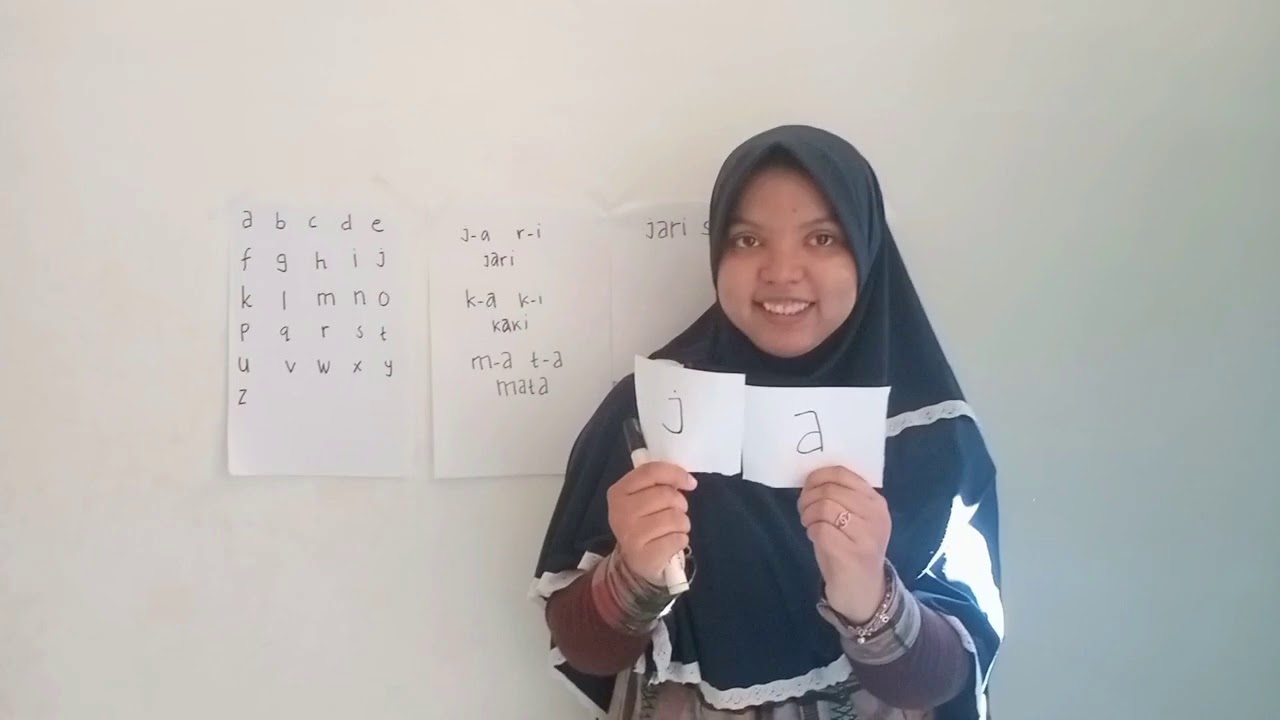 a b c d e
f g h i j
k l m n o
p q r s t
u v w x y
z
j-a r-i
jari
k-a k-i
kaki
m-a t-a
mata
jari
j
a